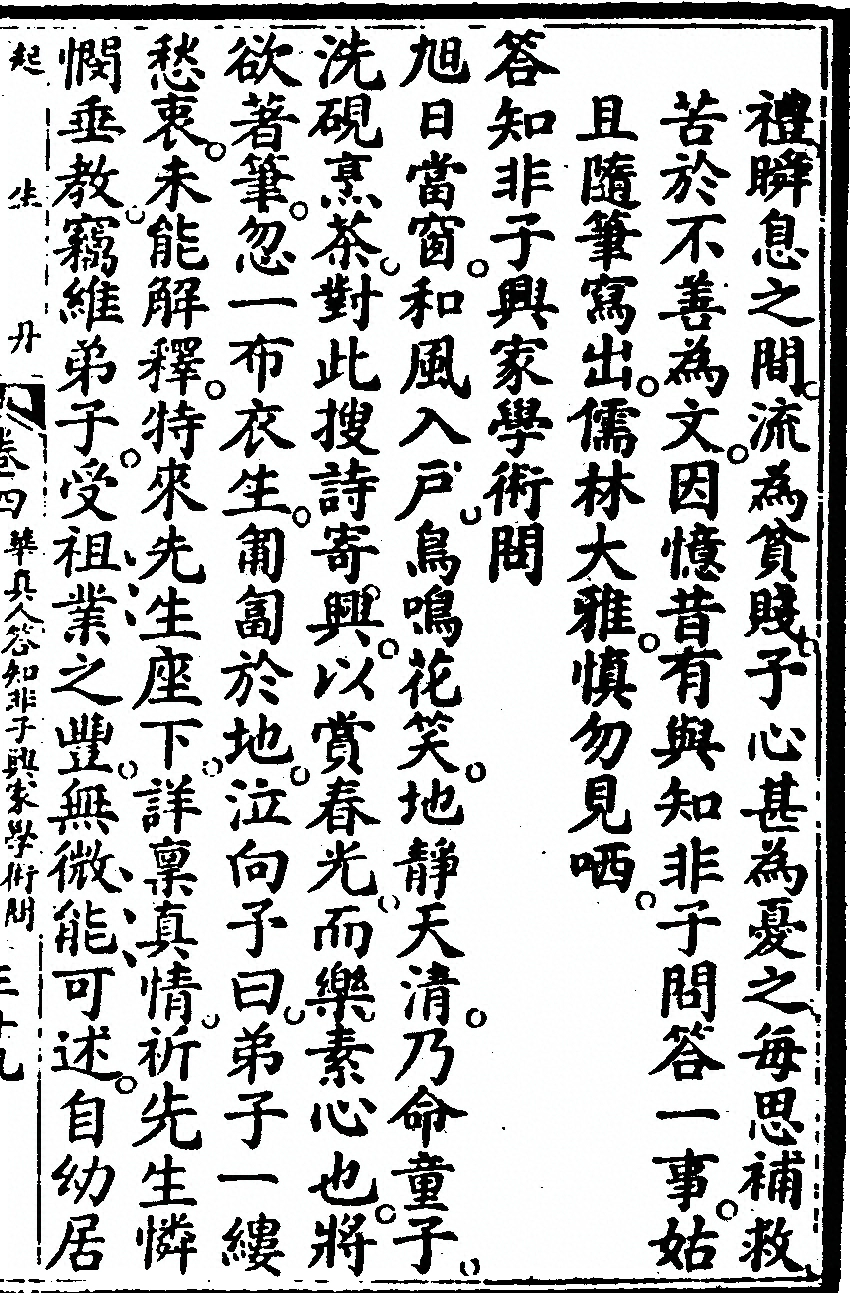 禮瞬息之間流為貧賤予心甚為憂之每思補救
苦於不善為文因憶昔有與知非子問答一事姑
且隨筆寫出儒林大雅慎勿見哂
答知非子興家學術問
旭日當窗和風入戶鳥鳴花笑地靜天清乃命童子
洗硯烹茶對此搜詩寄興以賞春光而樂素心也將
欲著筆忽一布衣生匍匐於地泣向予曰弟子一縷
愁衷未能解釋特來先生座下詳稟真情祈先生憐
憫垂教竊維弟子受祖業之豐無微能可述自幼居
起生丹
卷四
華真人答知非子興家學術問
三十九